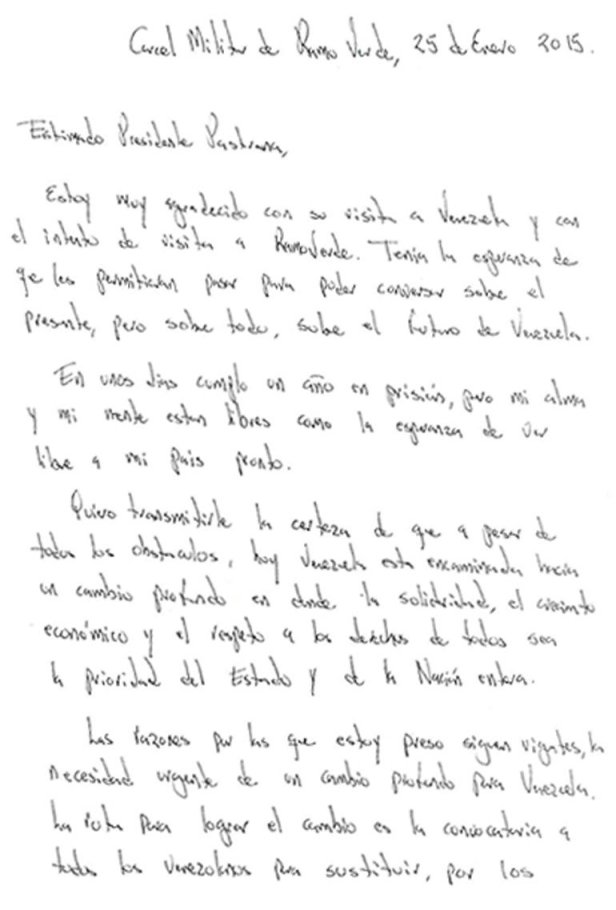 Carcel Militar de Ramo Verde, 25 de Enero 2015.
Estimado Presidente Pastrana,
Estoy muy agradecido con su visita a Venezuela y con
el intento de visita a Ramo Verde. Tenía la esperanza de
que les permitieran pasar para poder conversar sobre el
presente, pero sobre todo, sobre el futuro de Venezuela.
En unos días cumplo un año en prisión, pero mi alma
y mi mente estan libres como la esperanza de ver
libre a mi país pronto.
Quiero transmitirle la certeza de que a pesar de
todos los obstaculos, hoy Venezuela esta encaminada hacia
un cambio profundo en donde la solidaridad, el crecimiento
económico y el respeto a los derechos de todos sea
la prioridad del Estado y de la Nación entera.
Las razones por las que estoy preso siguen vigentes, la
necesidad urgente de un cambio profundo para Venezuela.
La ruta para lograr el cambio es la convocatoria a
todos los venezolanos para sustituir, por los